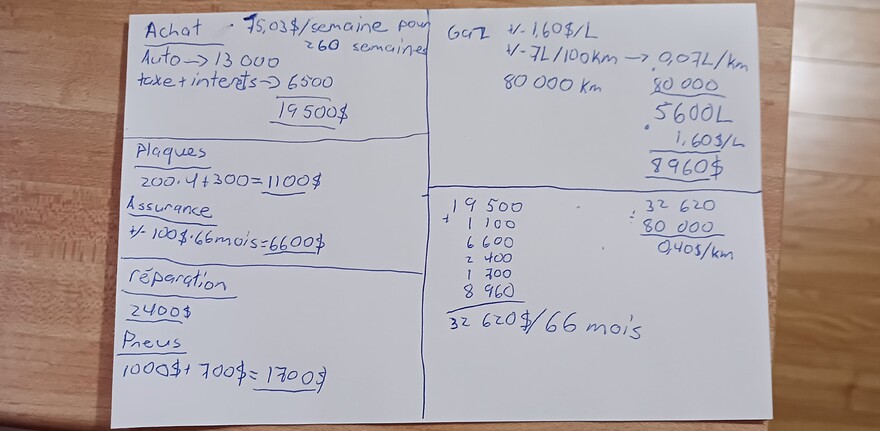 Achat · 75,03$/semaine pour
260 semaines
Auto → 13 000
taxe + interets → 6500
19 500$
Plaques
200 · 4 + 300 = 1100$
Assurance
+/- 100$ · 66 mois = 6600$
réparation
2400$
Pneus
1000$ + 700$ = 1700$
GaZ +/- 1,60$/L
+/- 7L/100km → 0,07L/km
80 000 km · 80 000
5600L
· 1,60$/L
8960$
19 500
+ 1 100
6 600
2 400
1 700
8 960
32 620$/66 mois
32 620
÷ 80 000
0,40$/km